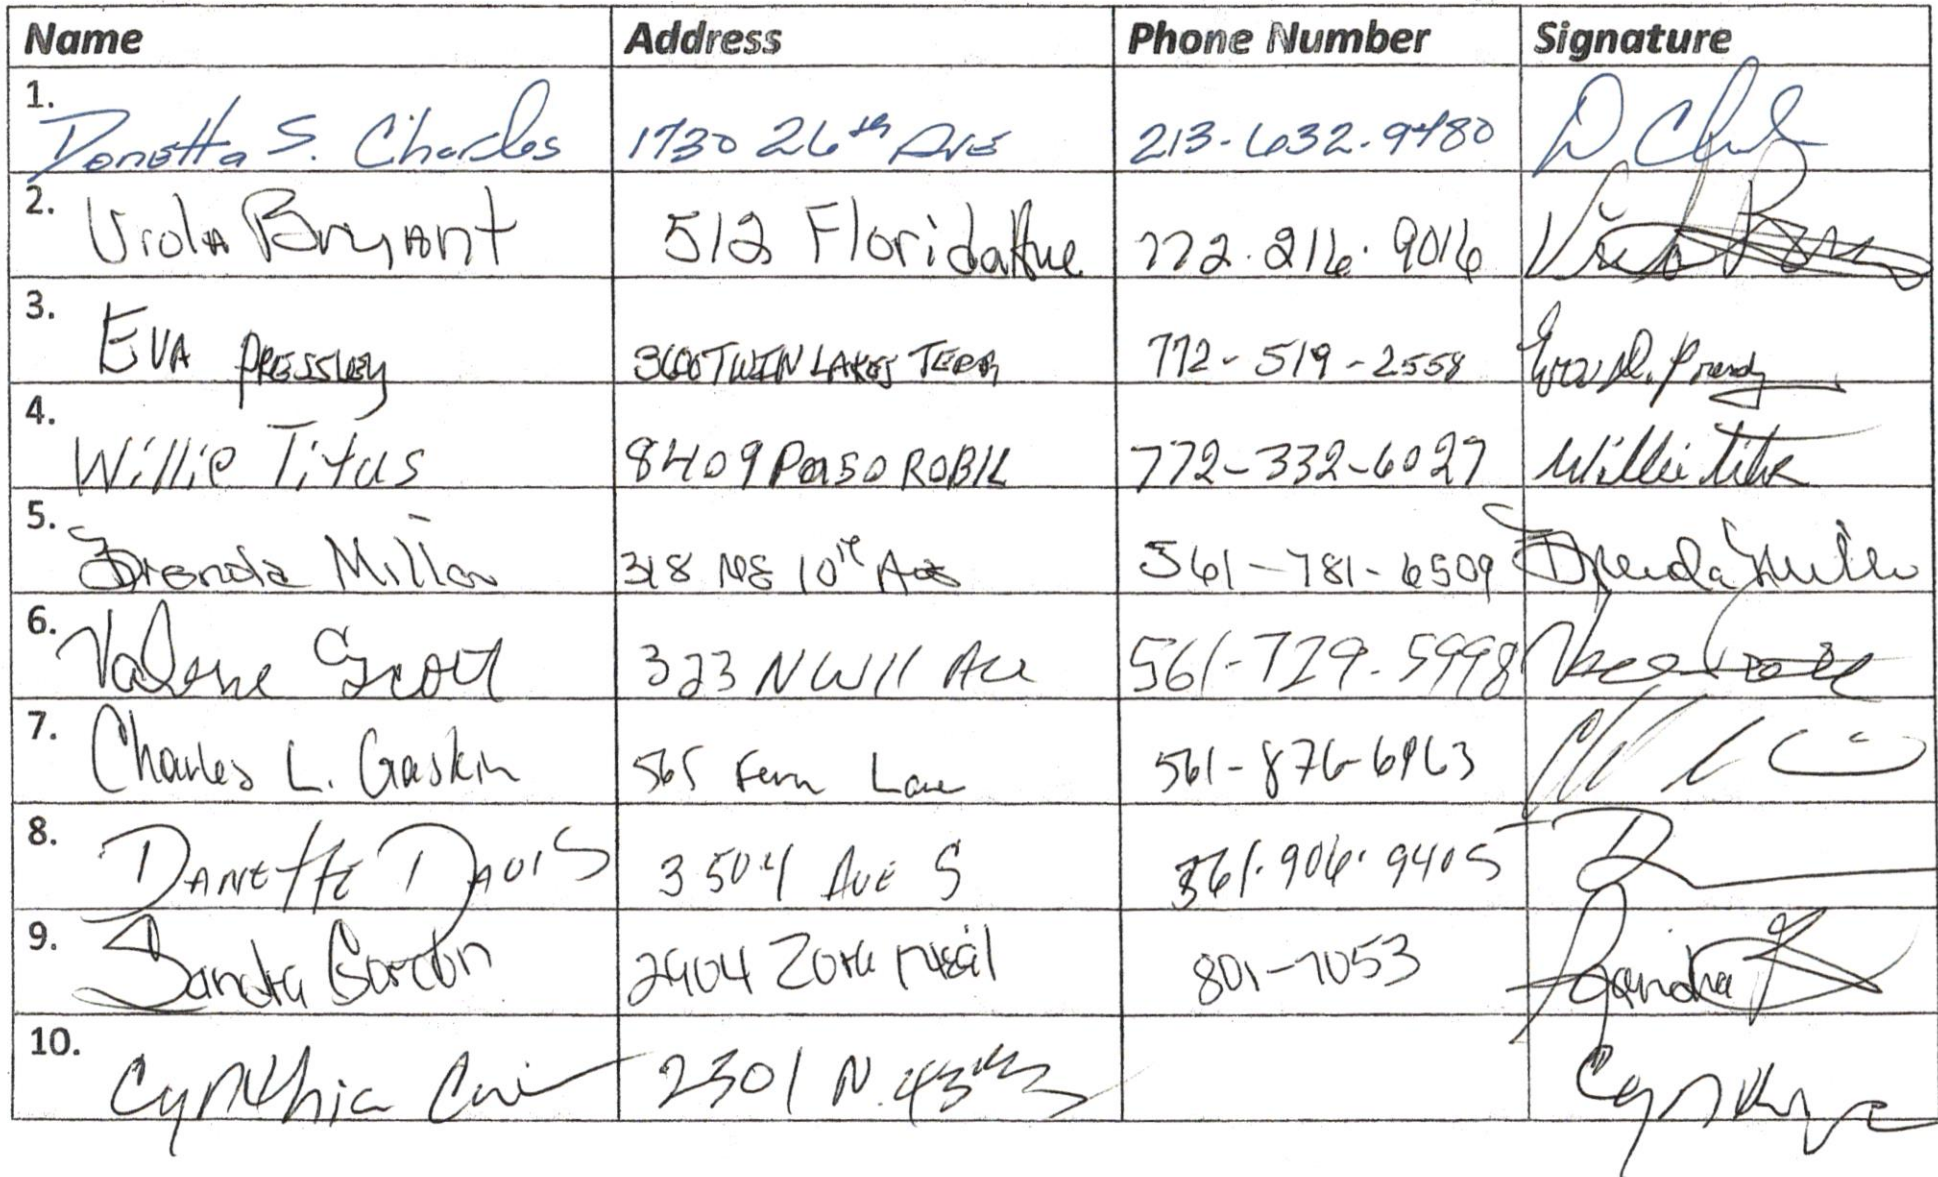 Name Address Phone Number Signature
1. Donetta S. Charles 1730 26th Ave 213-632-9480 D Ch
2. Viola Bryant 512 Florida Ave 772.216.9016
3. Eva Pressley 3600 Twin Lakes Terr 772-519-2558
4. Willie Titus 8409 Paso Robl 772-332-6027 Willie Titus
5. Brenda Miller 318 NE 10th Ave 561-781-6509 Brenda Miller
6. Valerie Scott 323 NW 11 Ave 561-729-5998
7. Charles L. Gaskin 565 Fern Lane 561-876-6963
8. Danette Davis 3504 Ave S 561-906-9405 D
9. Sandra Gordon 2904 Zora Neal 801-7053 Sandra
10. Cynthia 2301 N. 43rd